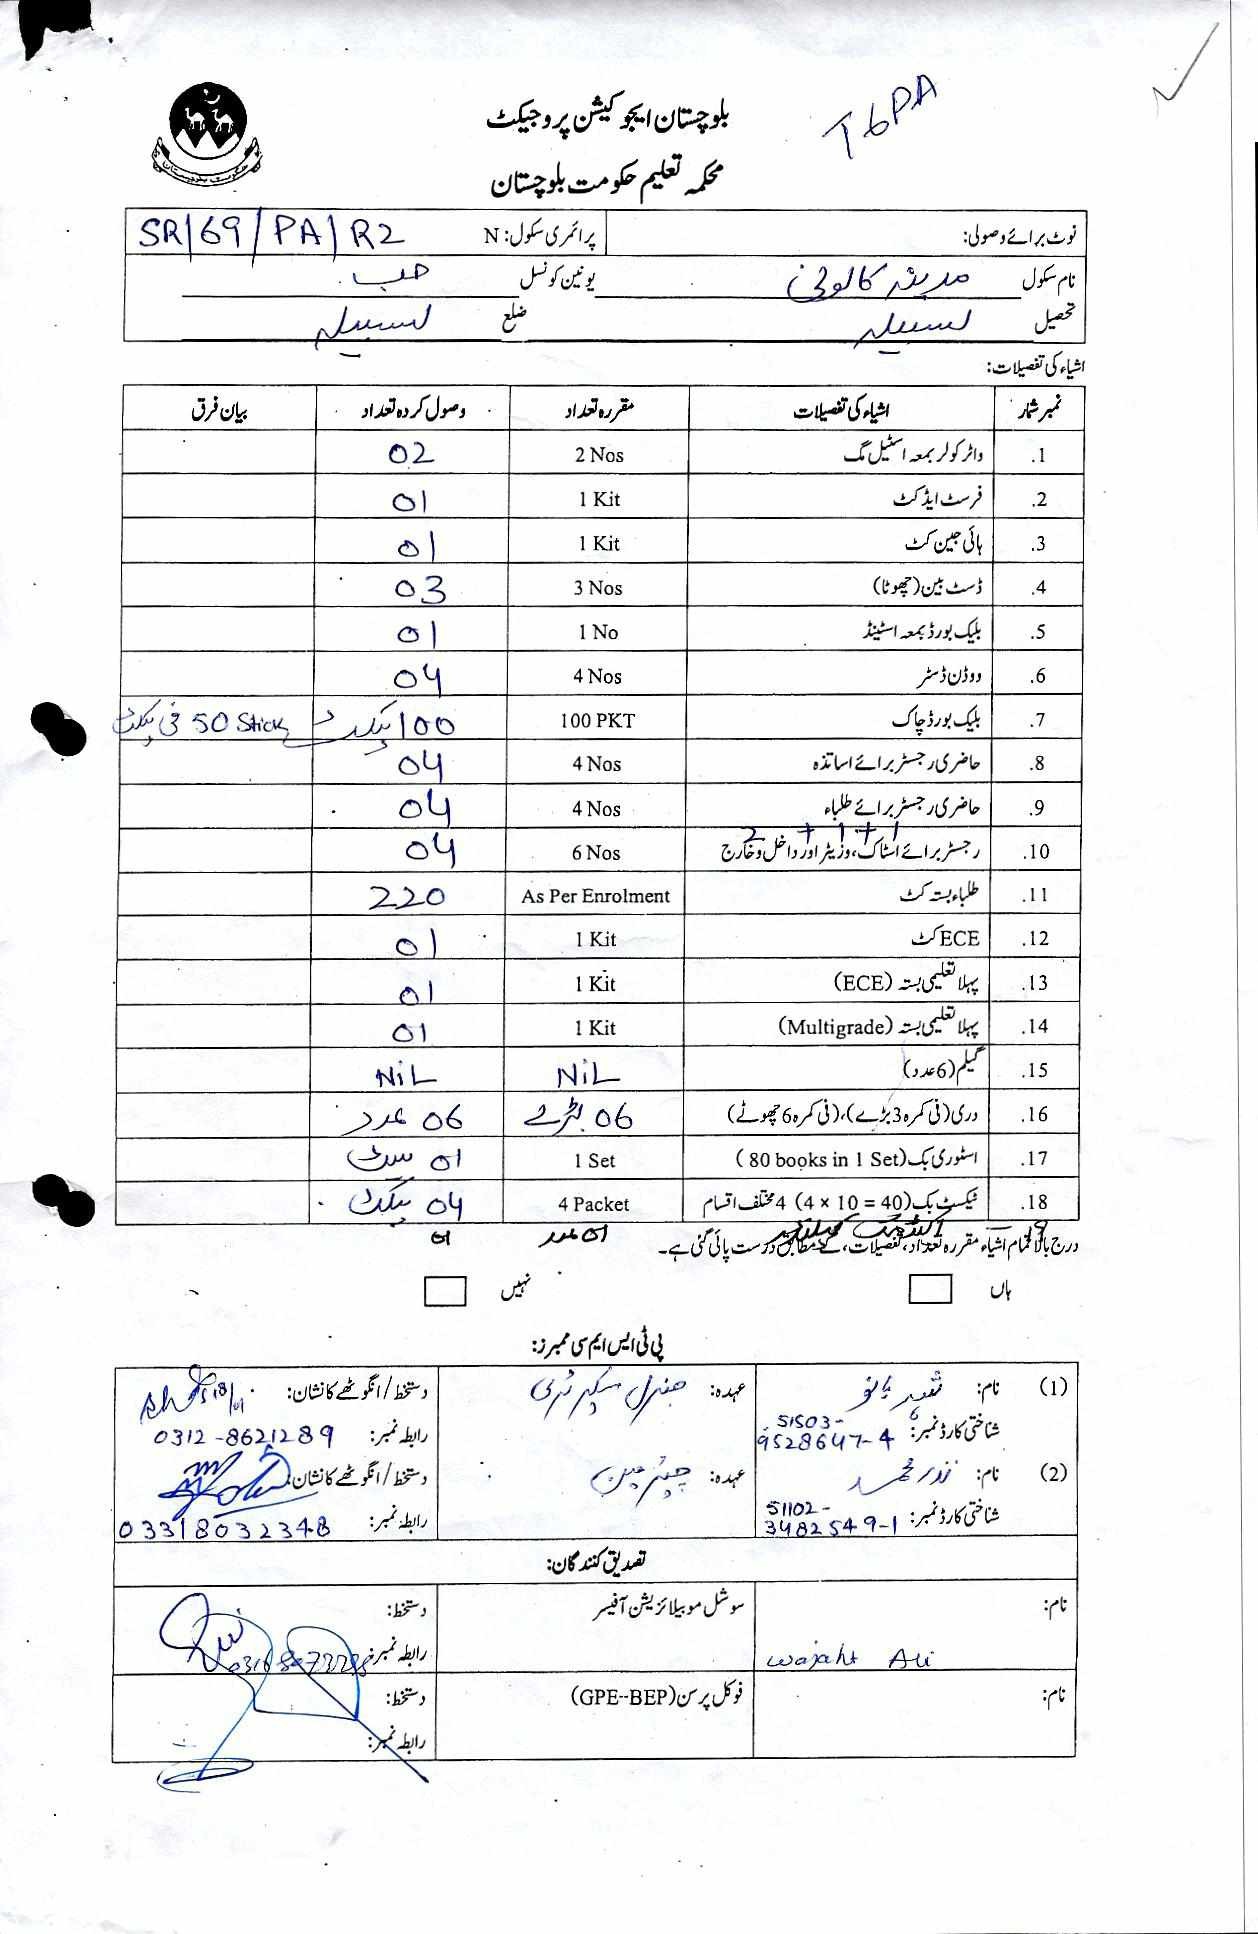 T6PA
بلوچستان ایجوکیشن پروجیکٹ
محکمہ تعلیم حکومت بلوچستان
حکومت بلوچستان
نوٹ برائے وصولی: پرائمری سکول: N SR/69/PA/R2
نام سکول مدینہ کالونی یونین کونسل حب
تحصیل لسبیلہ ضلع لسبیلہ
اشیاء کی تفصیلات:
نمبر شمار اشیاء کی تفصیلات مقررہ تعداد وصول کردہ تعداد بیان فرق
1. واٹر کولر بمعہ اسٹیل مگ 2 Nos 02
2. فرسٹ ایڈ کٹ 1 Kit 01
3. ہائی جین کٹ 1 Kit 01
4. ڈسٹ بین (چھوٹا) 3 Nos 03
5. بلیک بورڈ بمعہ اسٹینڈ 1 No 01
6. ووڈن ڈسٹر 4 Nos 04
7. بلیک بورڈ چاک 100 PKT 100 پیکٹ 50 Stick فی پیکٹ
8. حاضری رجسٹر برائے اساتذہ 4 Nos 04
9. حاضری رجسٹر برائے طلباء 4 Nos 04
2 + 1 + 1
10. رجسٹر برائے اسٹاک، وزیٹر اور داخل و خارج 6 Nos 04
11. طلباء بستہ کٹ As Per Enrolment 220
12. ECE کٹ 1 Kit 01
13. پہلا تعلیمی بستہ (ECE) 1 Kit 01
14. پہلا تعلیمی بستہ (Multigrade) 1 Kit 01
15. گیلم (6 عدد) NiL NiL
16. دری (فی کمرہ 3 بڑے)، (فی کمرہ 6 چھوٹے) 06 بڑے 06 عدد
17. اسٹوری بک (80 books in 1 Set) 1 Set 01 سیٹ
18. ٹیکسٹ بک (4 x 10 = 40) 4 مختلف اقسام 4 Packet 04 پیکٹ
19 01 عدد 01
درج بالا تمام اشیاء مقررہ تعداد، تفصیلات، کے مطابق درست پائی گئی ہے۔
ہاں نہیں
پی ٹی ایس ایم سی ممبرز:
(1) نام: عہدہ: جنرل سیکریٹری دستخط/انگوٹھے کا نشان:
شناختی کارڈ نمبر: 51503-9528647-4 رابطہ نمبر: 0312-8621289
(2) نام: نذر محمد عہدہ: چیئرمین دستخط/انگوٹھے کا نشان:
شناختی کارڈ نمبر: 51102-3482549-1 رابطہ نمبر: 03318032348
تصدیق کنندگان:
نام: Wajaht Ali سوشل موبیلائزیشن آفیسر دستخط:
رابطہ نمبر:
نام: فوکل پرسن (GPE--BEP) دستخط:
رابطہ نمبر: